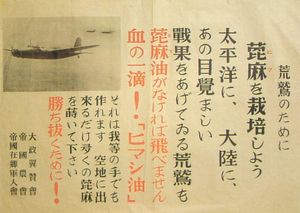 荒鷲のために
蓖麻を栽培しよう
太平洋に、大陸に、
あの目覺ましい
戰果をあげてゐる荒鷲も
蓖麻油がなければ飛べません
血の一滴!・「ヒマシ油」
それは我等の手でも
作れます 空地に出
來るだけ多くの蓖麻
を蒔いて下さい
勝ち抜くために!
大政翼賛會
帝國農會
帝國在鄕軍人會